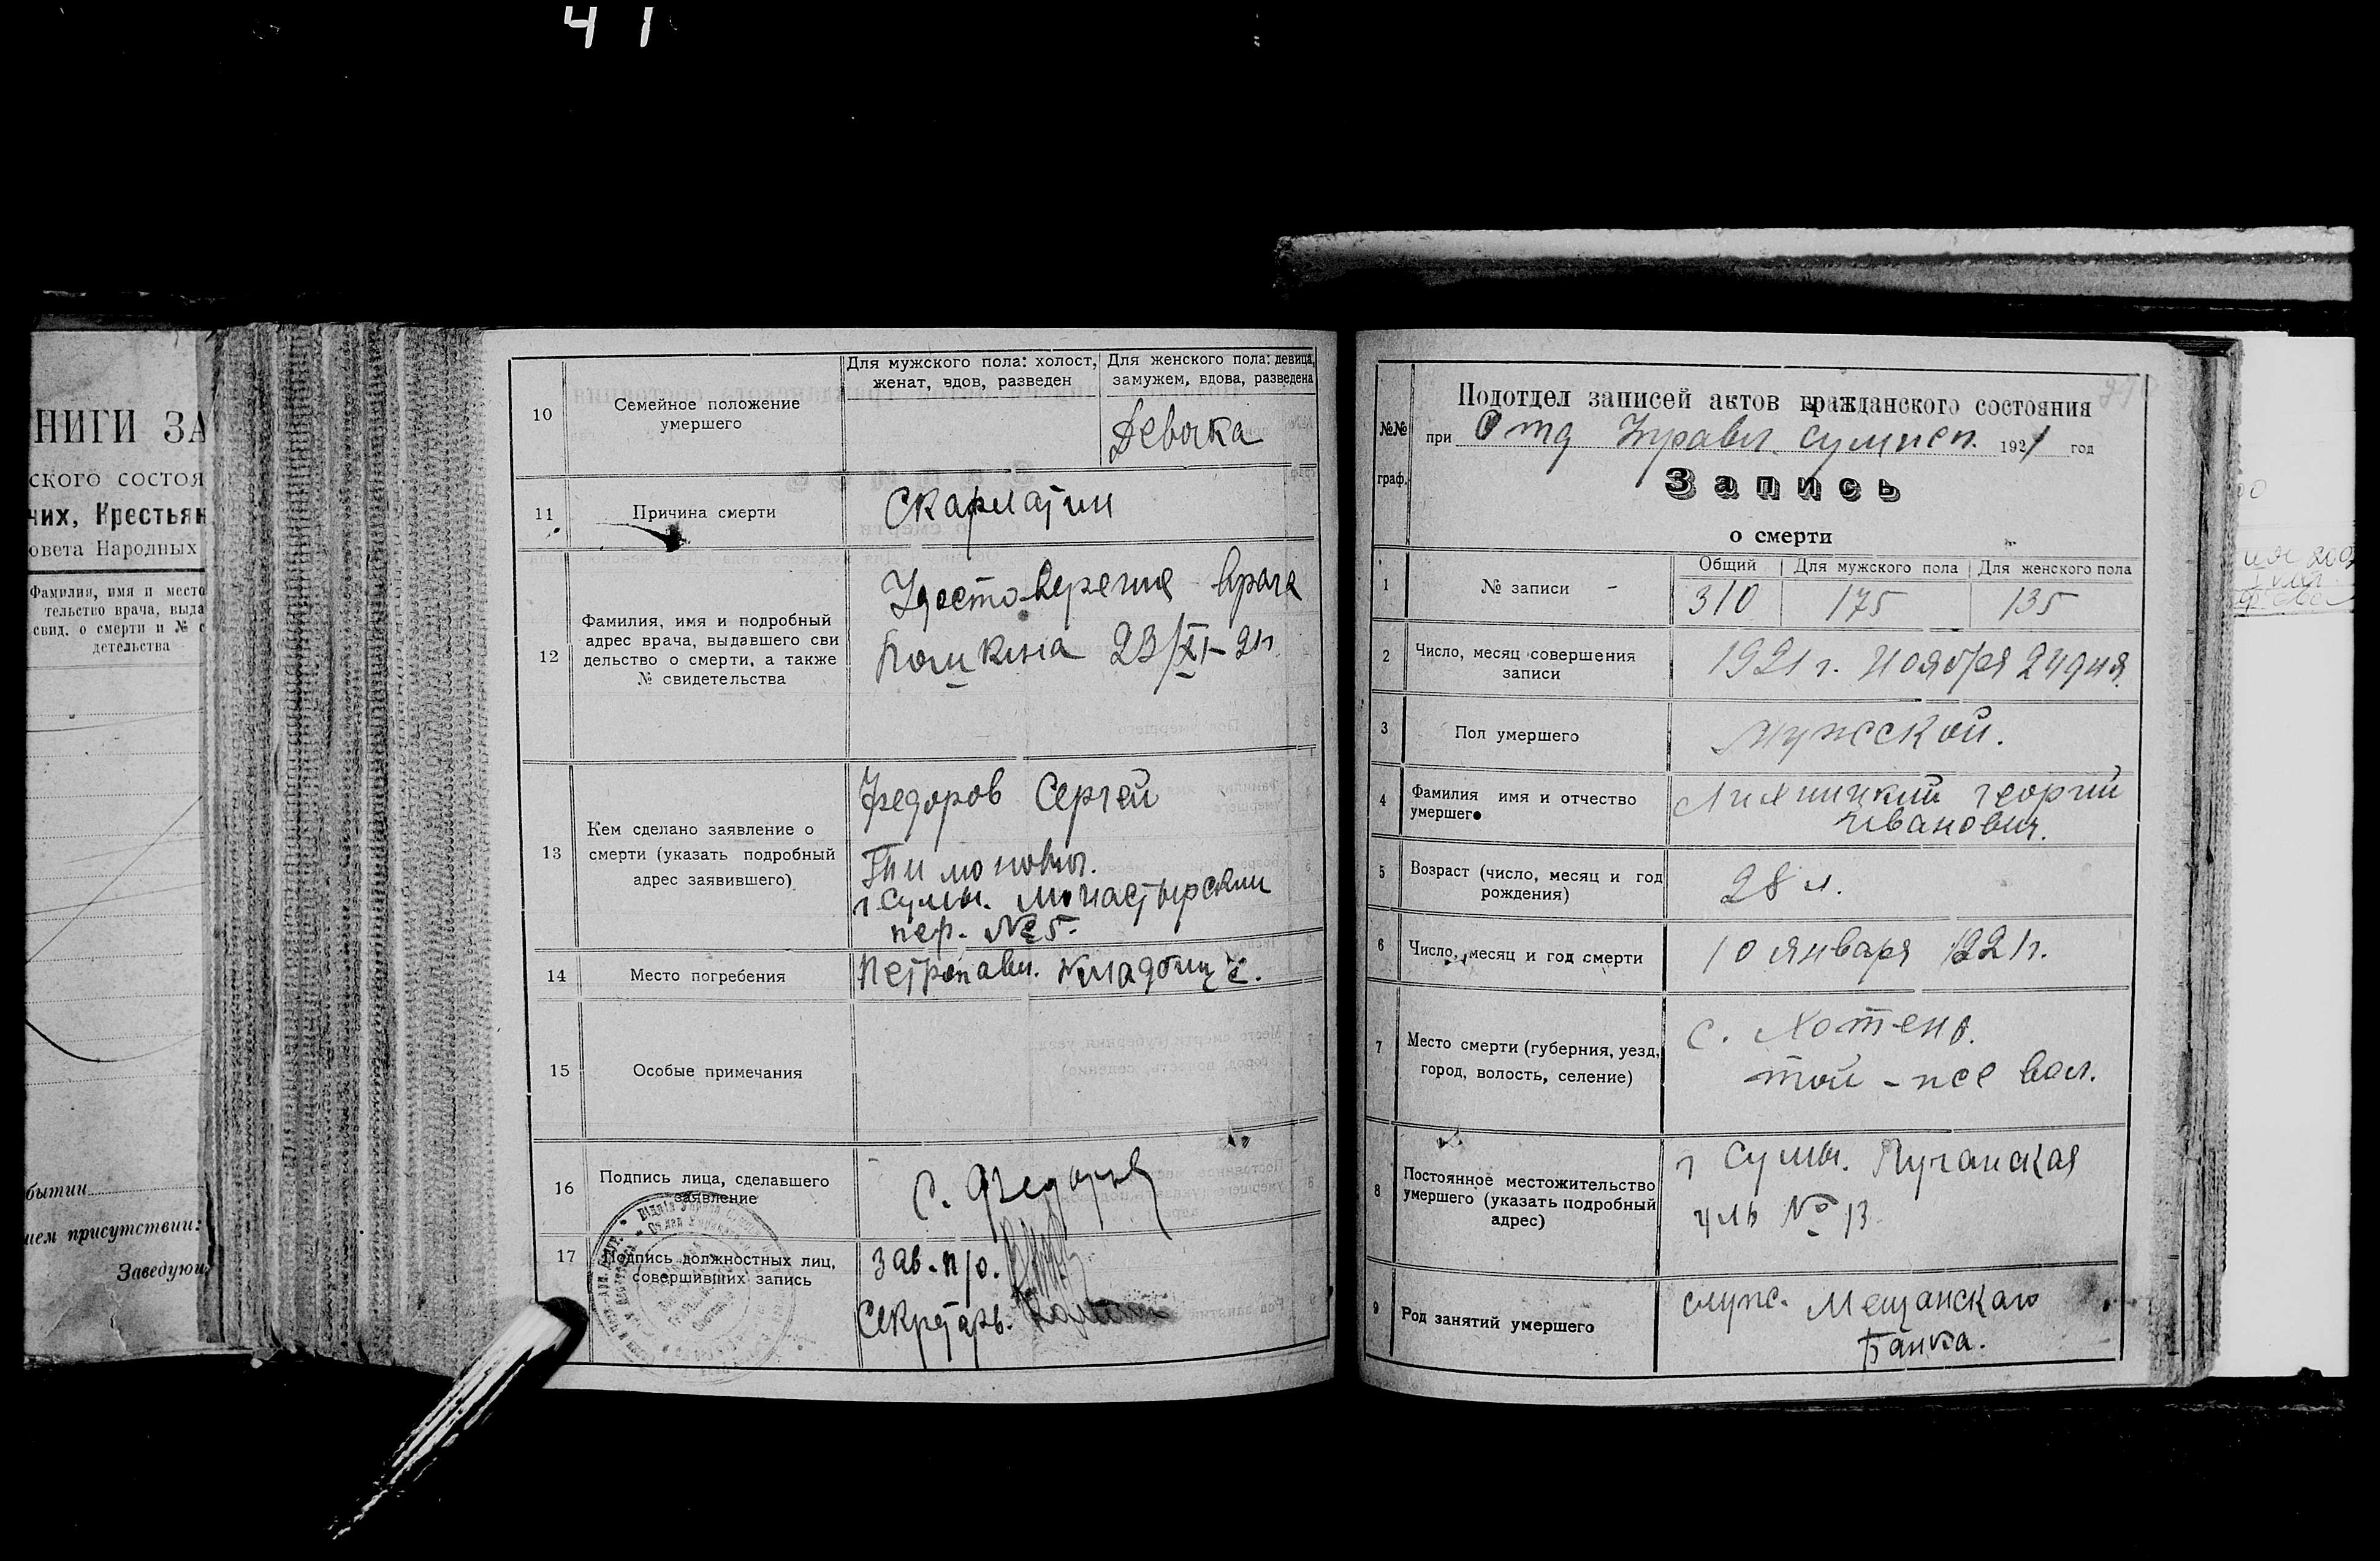 41
НИГИ ЗА
ского состоя
чих, Крестьян
овета Народных
Фамилия, имя и место
тельство врача, выда
свид. о смерти и № с
детельства
бытии
ием присутствии:
Заведую
10
Семейное положение
умершего
Для мужского пола: холост,
женат, вдов, разведен
Для женского пола: девица,
замужем, вдова, разведена
Девочка
11
Причина смерти
Скарлатин
12
Фамилия, имя и подробный
адрес врача, выдавшего сви
дельство о смерти, а также
№ свидетельства
Удостоверение врача
23/XI-21г.
13
Кем сделано заявление о
смерти (указать подробный
адрес заявившего)
Федоров Сергей
г Сумы. Монастырский
пер. № 5.
14
Место погребения
Петропавл. Кладбище.
15
Особые примечания
16
Подпись лица, сделавшего
заявление
С. Федоров
17
Подпись должностных лиц,
совершивших запись
Зав. п/о.
Секретарь.
№№
граф.
Подотдел записей актов гражданского состояния
при Отд Управл. Сумисп. 1921 год
Запись
о смерти
1
№ записи
Общий
Для мужского пола
Для женского пола
310
175
135
2
Число, месяц совершения
записи
1921 г. Ноября 24 дня
3
Пол умершего
мужской.
4
Фамилия имя и отчество
умершего
Георгий
Иванович.
5
Возраст (число, месяц и год
рождения)
28 л.
6
Число, месяц и год смерти
10 января
7
Место смерти (губерния, уезд,
город, волость, селение)
с. Хотень.
той-же вол.
8
Постоянное местожительство
умершего (указать подробный
адрес)
г Сумы.
уль № 13.
9
Род занятий умершего
служ. Мещанскаго
Банка.